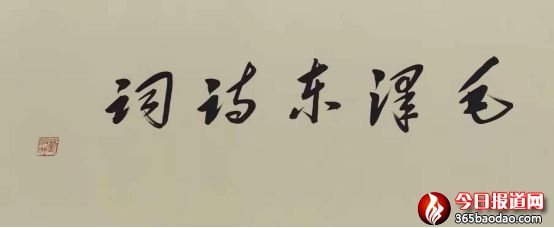 毛泽东诗词
今日报道网
365baodao.com